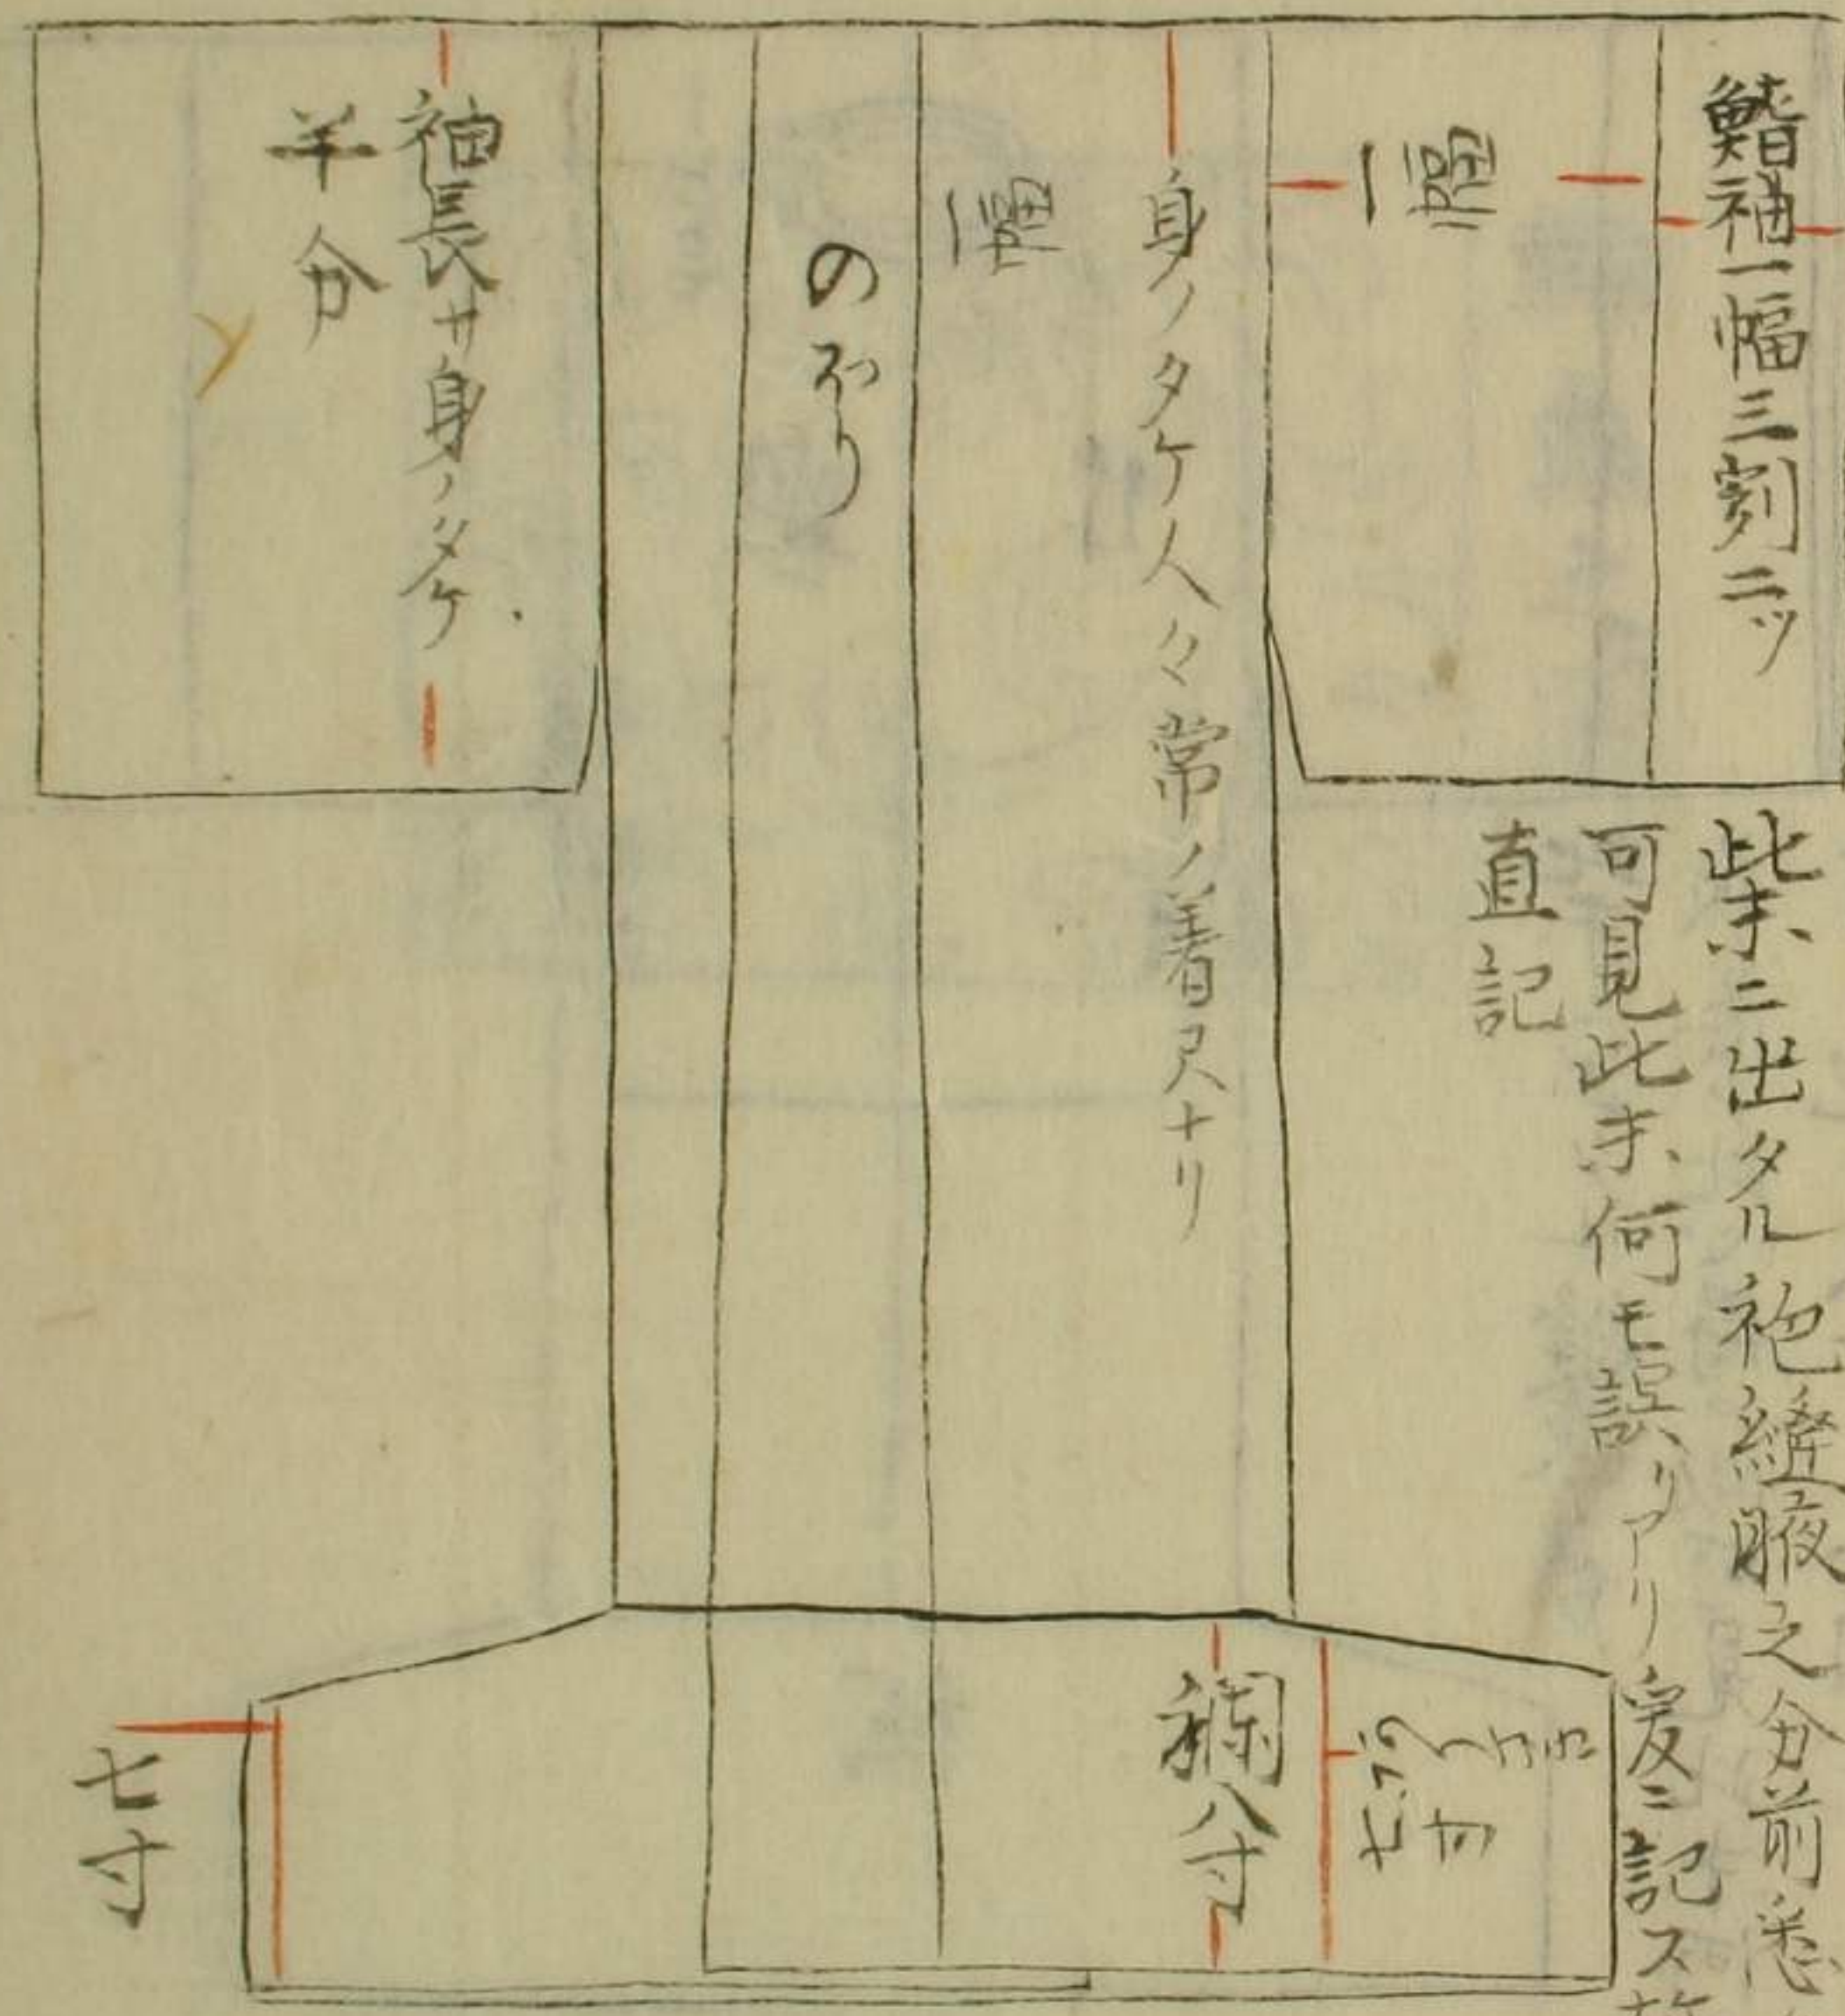 鰭袖一幅三割二ツ
一幅
身ノタケ人々常ノ着尺ナリ
一幅
のぼり
袖長サ身ノタケ
半分
此末ニ出タル袍縫腋之分前悉
可見此末何モ誤リアリ爰ニ記ス
直記
襴八寸
七寸